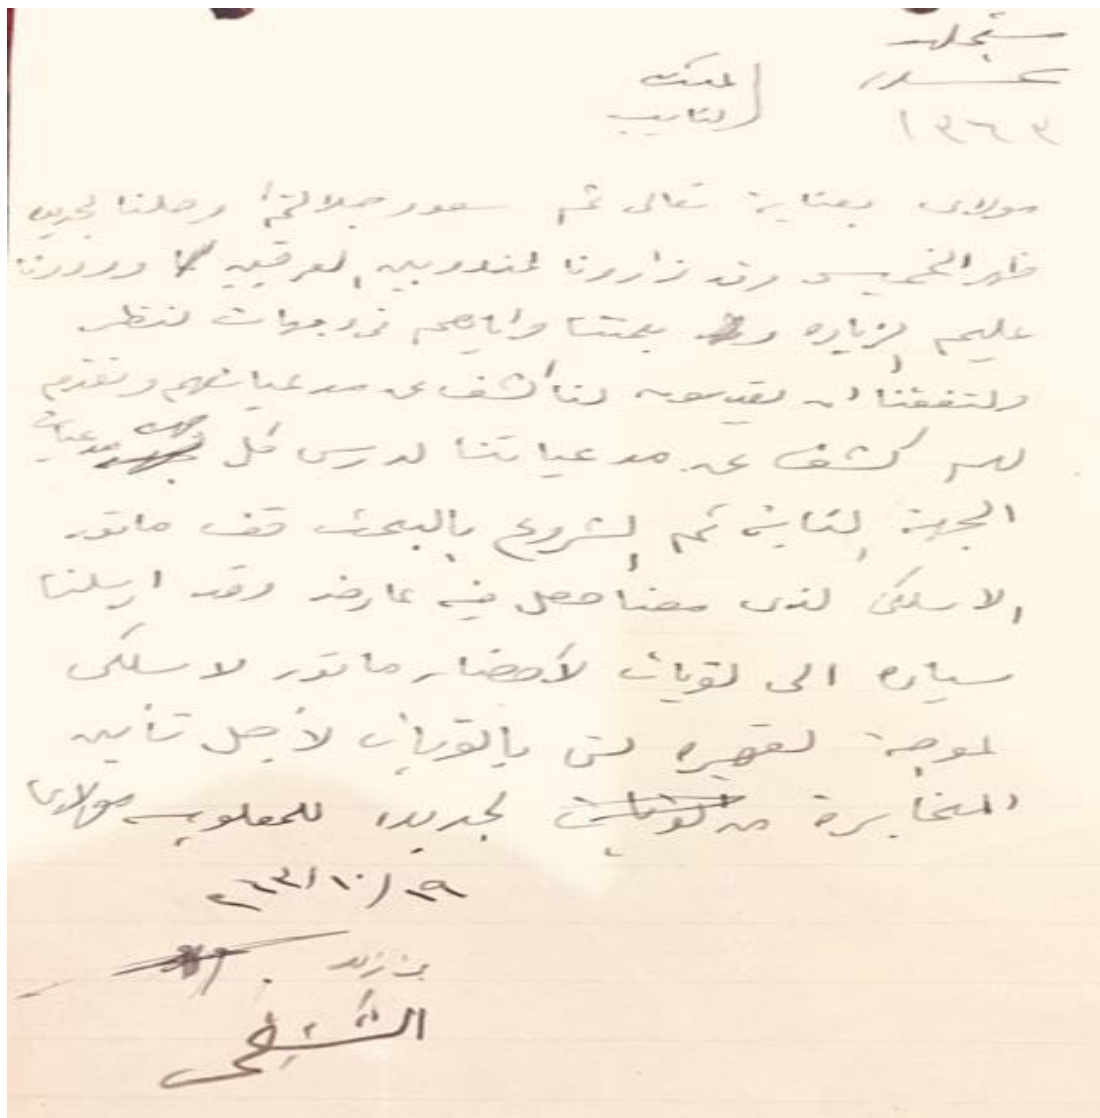 مستعجله
١٣٦٣
مولاى بعناية تعالى ثم سعود جلالتكم وصلنا
ظهر الخميس وقد زارونا المندوبين العرقيين وردرنا
عليهم الزياره بحثنا واياهم فى وجهات لنظر
ولتفقنا ان يقدمون لنا كشف عن مدعياتهم ونقدم
لهم كشف عن مدعياتنا لدرس كل جهه مدعيات
الجهة الثانية ثم الشروع بالبحث ماتور
الاسلكى لذى معنا حصل فيه عارض وقد ارسلنا
سياره الى لقويات لأحضار ماتور لاسلكى
لموجة لقصيره لتى بالقويات لأجل تأمين
المخابرة من لجديده للمعلوميه مولاى
٢٩/١٠/٣٦٣
بن زيد